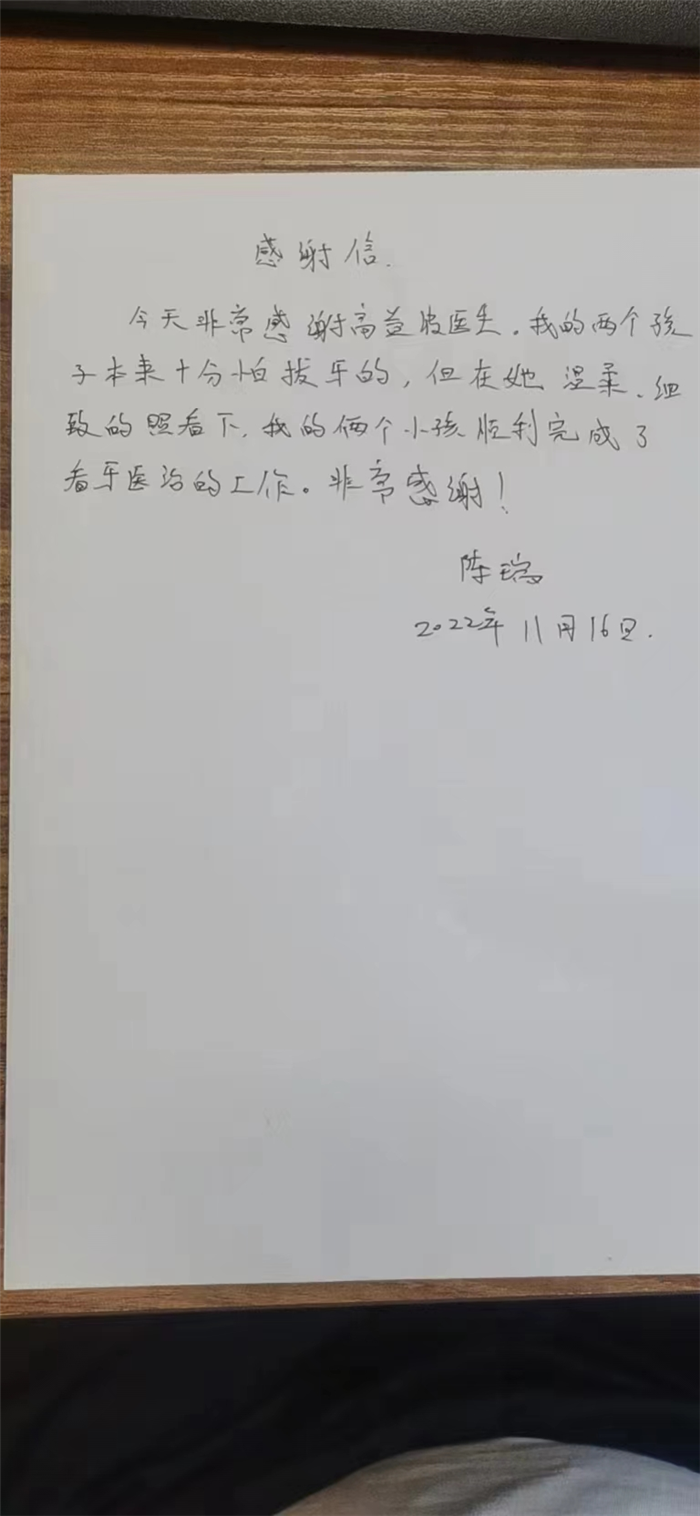 感谢信.
今天非常感谢高益股医生.我的两个孩
子本来十分怕拔牙的,但在她温柔、细
致的照看下,我的俩个小孩顺利完成了
看牙医治的工作。非常感谢!
陈瑞
2022年11月16日.